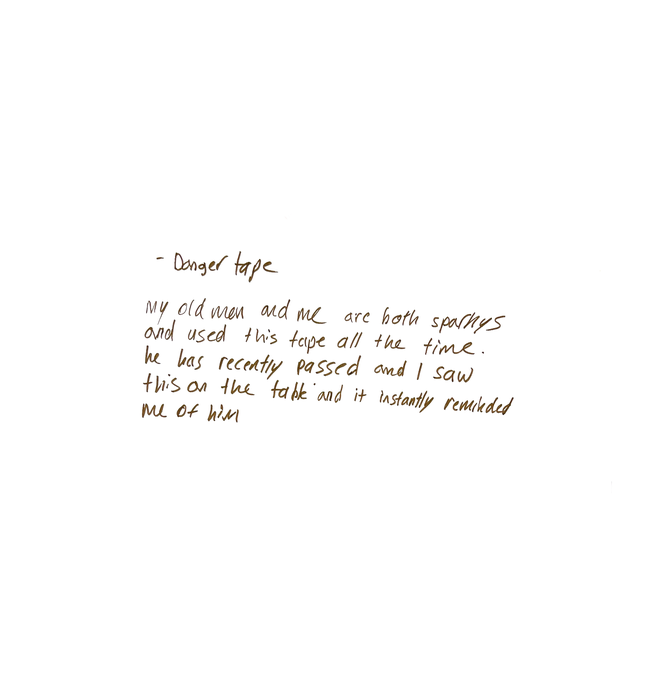 - Danger tape
My old man and me are both sparkys
and used this tape all the time.
he has recently passed and I saw
this on the table and it instantly reminded
me of him